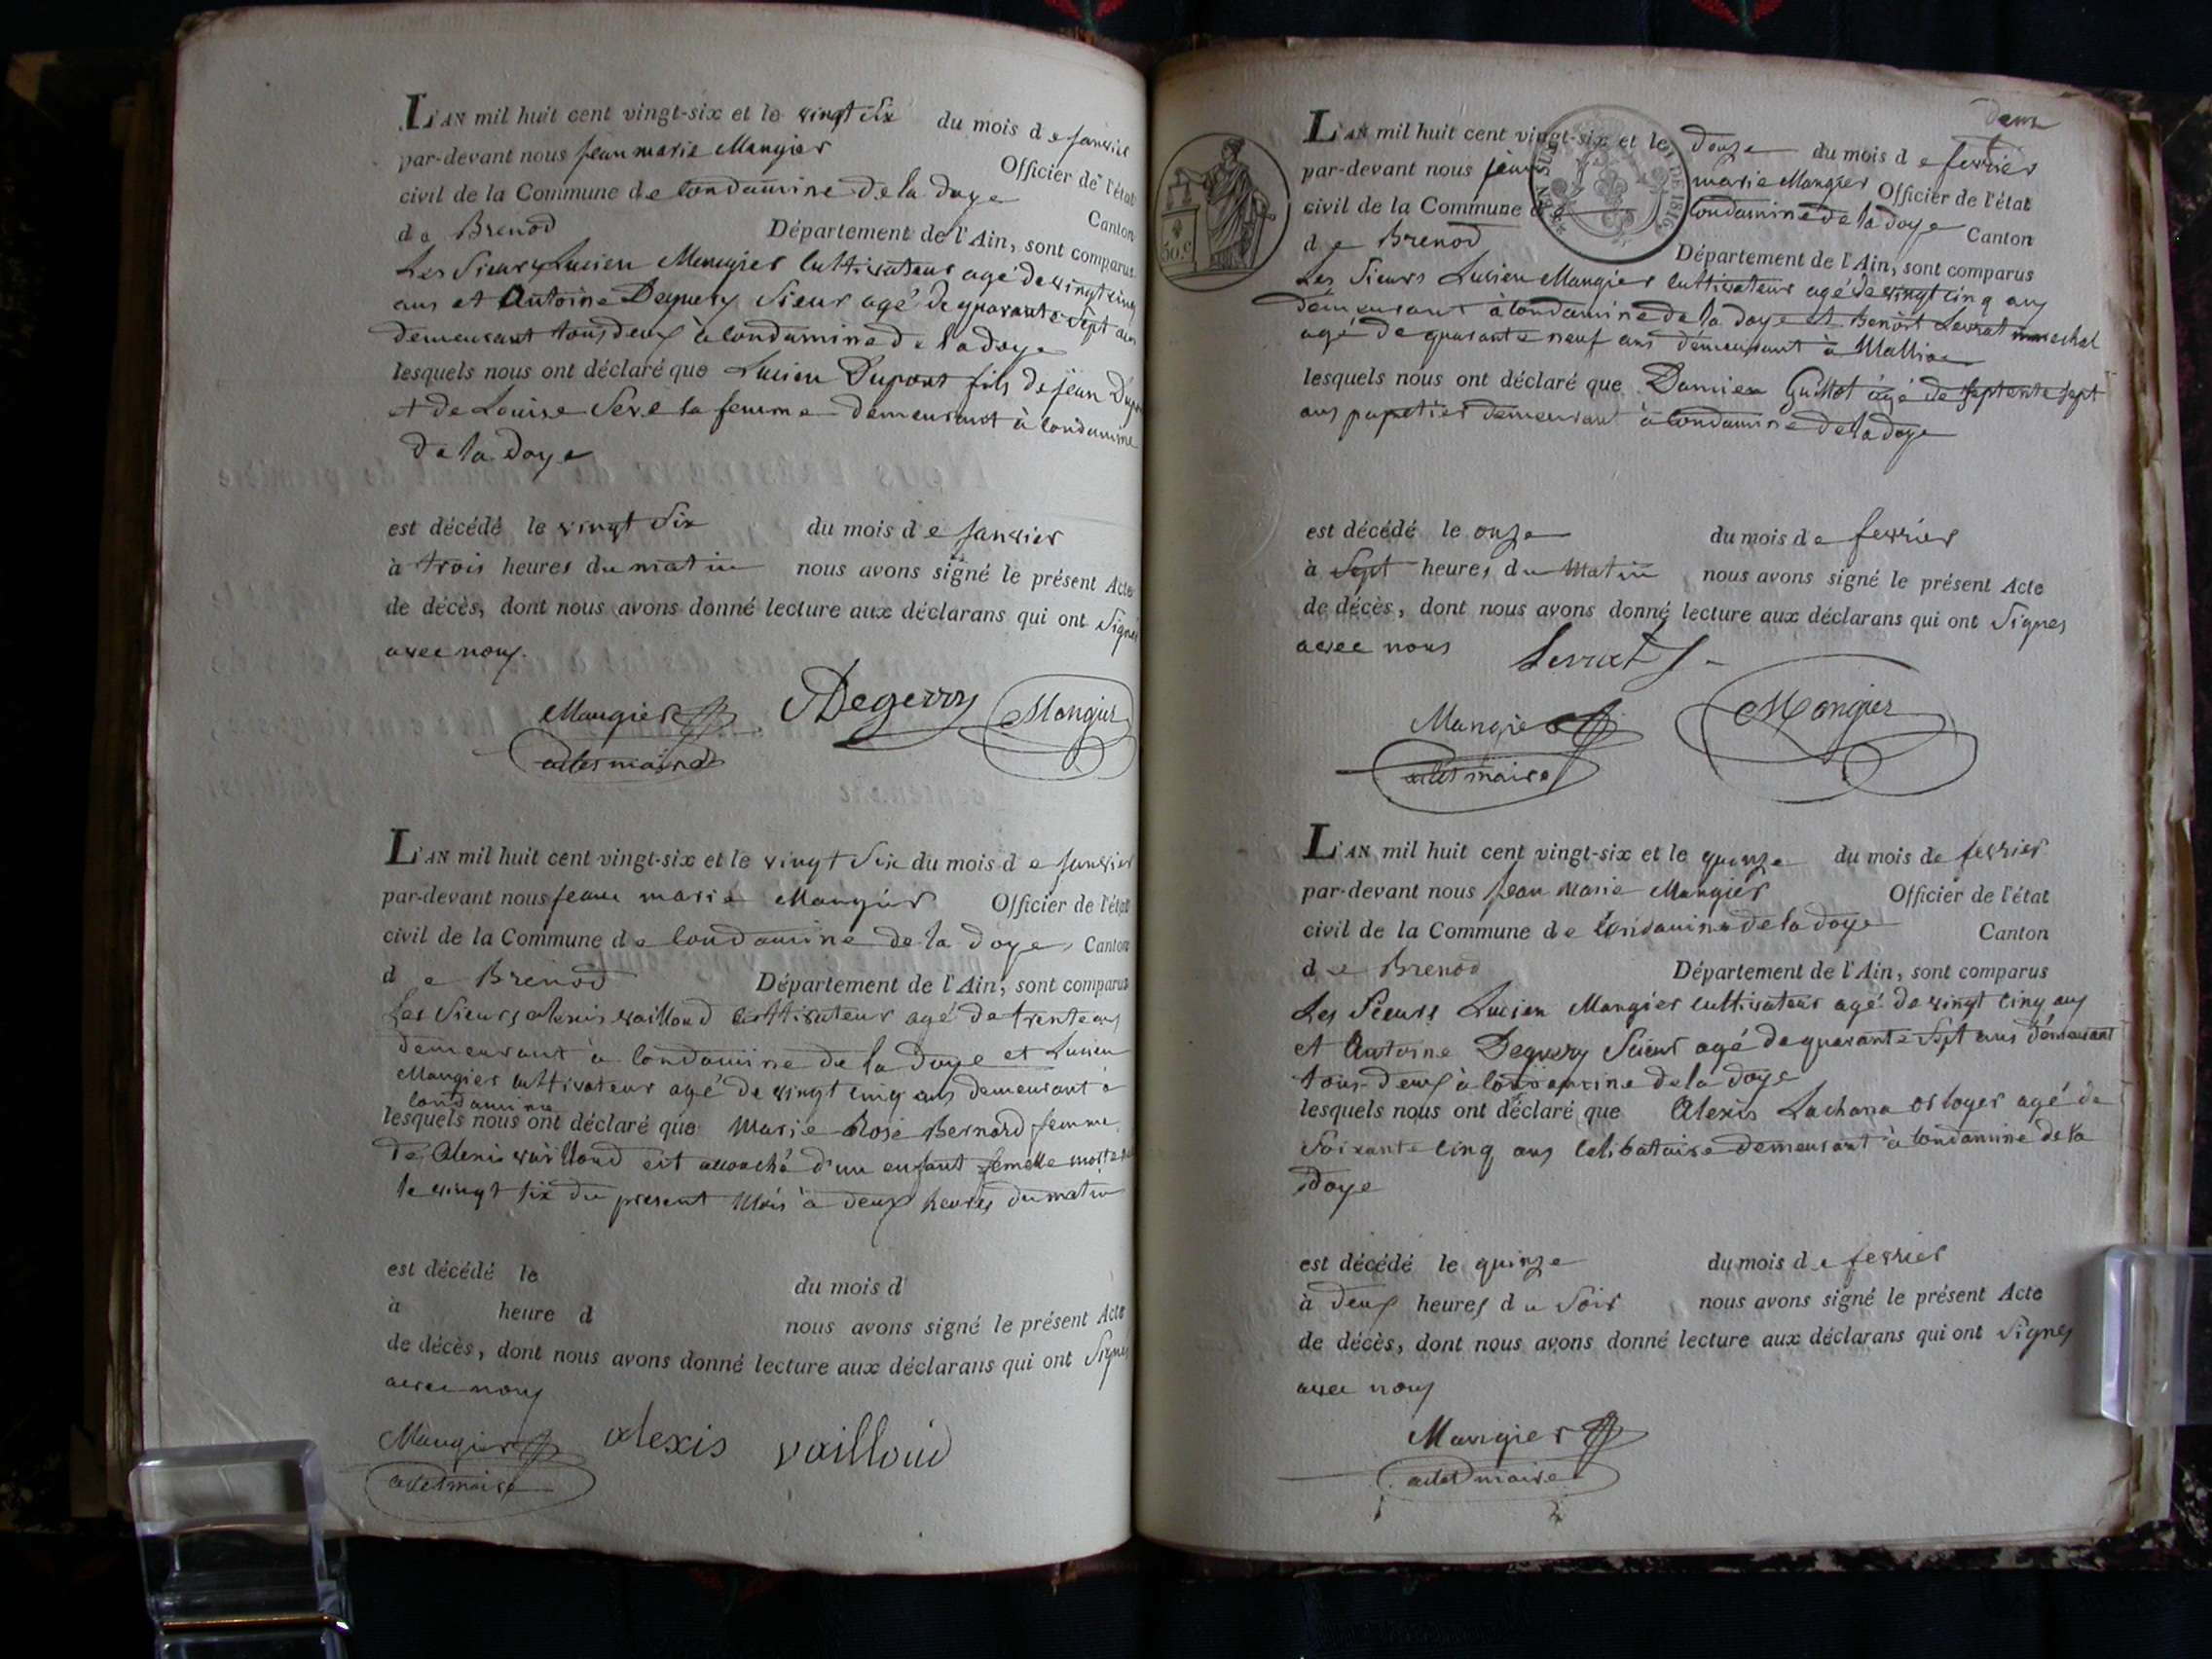 L'AN mil huit cent vingt-six et le vingt six du mois de Janvier
par-devant nous Jean marie Mangier Officier de l'état
civil de la Commune de Condamine de la doye Canton
de Brenod Département de l'Ain, sont comparus
Les Sieurs Lucien Mangier Cultivateur agé de vingt cinq
ans et Antoine Deguery Sieur agé de quarante sept ans
demeurant tous deux à Condamine de la doye
lesquels nous ont déclaré que Lucien Dupont fils de jean
et de Louise Seve la femme demeurant à Condamine
de la doye
est décédé le vingt six du mois de Janvier
à trois heures du matin nous avons signé le présent Acte
de décès, dont nous avons donné lecture aux déclarans qui ont signés
avec nous.
Mangier Degerry Mangier
maire
L'AN mil huit cent vingt-six et le vingt six du mois de Janvier
par-devant nous Jean marie Mangier Officier de l'état
civil de la Commune de Condamine de la doye Canton
de Brenod Département de l'Ain, sont comparus
Les Sieurs alexis vailloud Cultivateur agé de trente ans
demeurant à Condamine de la Doye et Lucien
Mangier Cultivateur agé de vingt cinq ans demeurant à
Condamine
lesquels nous ont déclaré que Marie Rose Bernard femme
de Alexis vailloud est accouché d'un enfant femelle morte
le vingt six du present Mois à deux heures du matin
est décédé le du mois d
à heure d nous avons signé le présent Acte
de décès, dont nous avons donné lecture aux déclarans qui ont signés
avec nous
Mangier alexis vailloud
maire
deux
L'AN mil huit cent vingt-six et le douze du mois de fevrier
par-devant nous jean marie Mangier Officier de l'état
civil de la Commune de Condamine de la doye Canton
de Brenod Département de l'Ain, sont comparus
50 c.
DE 1816
Les Sieurs Lucien Mangier Cultivateur agé de vingt cinq ans
demeurant à Condamine de la doye et Benoit Levrat marechal
agé de quarante neuf ans demeurant à
lesquels nous ont déclaré que Damien Guillot âgé de septente sept
ans papetier demeurant à Condamine de la doye
est décédé le onze du mois de fevrier
à Sept heures du Matin nous avons signé le présent Acte
de décès, dont nous avons donné lecture aux déclarans qui ont signés
avec nous Levrat
Mangier Mangier
maire
L'AN mil huit cent vingt-six et le quinze du mois de fevrier
par-devant nous Jean marie Mangier Officier de l'état
civil de la Commune de Condamine de la doye Canton
de Brenod Département de l'Ain, sont comparus
Les Sieurs Lucien Mangier Cultivateur agé de vingt cinq ans
et Antoine Deguery Scieur agé de quarante sept ans demeurant
tous deux à Condamine de la doye
lesquels nous ont déclaré que Alexis Lachana orloger agé de
Soixante cinq ans Celibataire demeurant à Condamine de la
doye
est décédé le quinze du mois de fevrier
à deux heures du Soir nous avons signé le présent Acte
de décès, dont nous avons donné lecture aux déclarans qui ont signés
avec nous
Mangier
maire